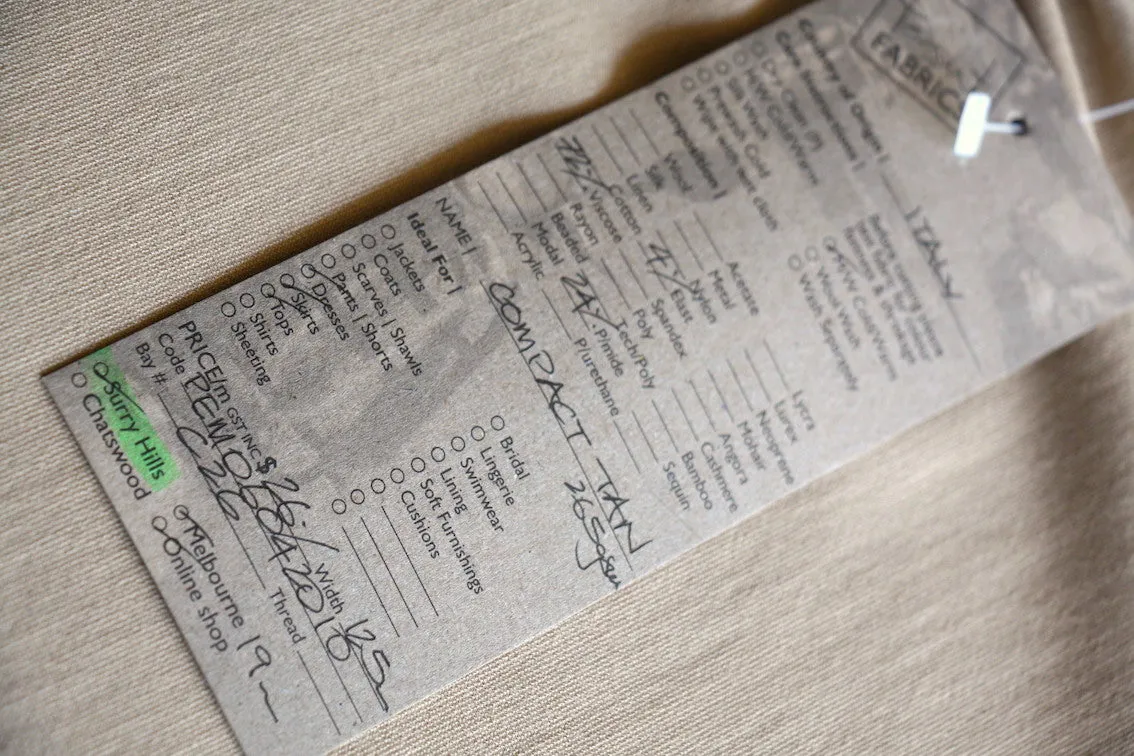 FABRIC
Country of Origin | ITALY
Care Instructions |
Dry Clean (P)
H/W Cold/Warm
Silk Wash
Pretreat Cold
Wipe with wet cloth
H/W Cold/Warm
Hand Wash
Wash Separately
Composition |
Wool
Silk
Linen
Cotton
Viscose
Rayon
Beaded
Modal
Acrylic
Acetate
Metal
Nylon
4% Elast.
Spandex
Poly
Tech/Poly
24% P/imide
P/urethane
Lycra
Lurex
Neoprene
Mohair
Angora
Cashmere
Bamboo
Sequin
NAME | COMPACT TAN
265gsm
Ideal For |
Jackets
Coats
Scarves | Shawls
Pants | Shorts
Dresses
Skirts
Tops
Shirts
Sheeting
Bridal
Lingerie
Swimwear
Lining
Soft Furnishings
Cushions
PRICE/m GST INC $ Width
Code
Bay #. Thread
Surry Hills
Chatswood
Melbourne 19m
Online shop